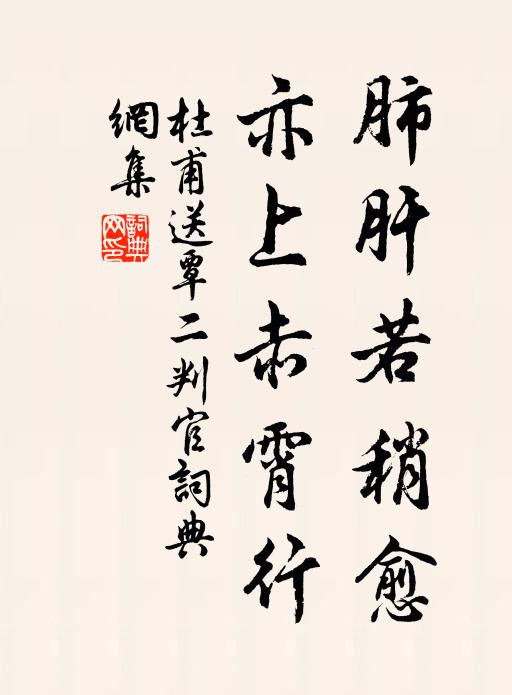 肺肝若稍愈
亦上赤霄行
杜甫送覃二判官詞典
網集
詞典網印